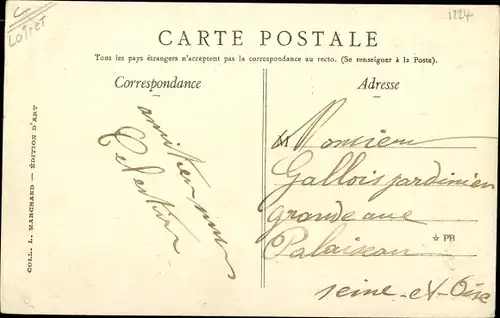 C
Loiret
1224
CARTE POSTALE
Tous les pays étrangers n'acceptent pas la correspondance au recto. (Se renseigner à la Poste).
Correspondance
Adresse
COLL. L. MARCHAND — ÉDITION D'ART
Celestine
M Monsieur
Gallois jardinier
grande rue
Palaiseau
☆ PB
Seine-et-Oise